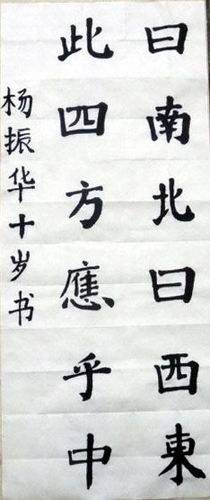 曰南北曰西東
此四方應乎中
杨振华十岁书